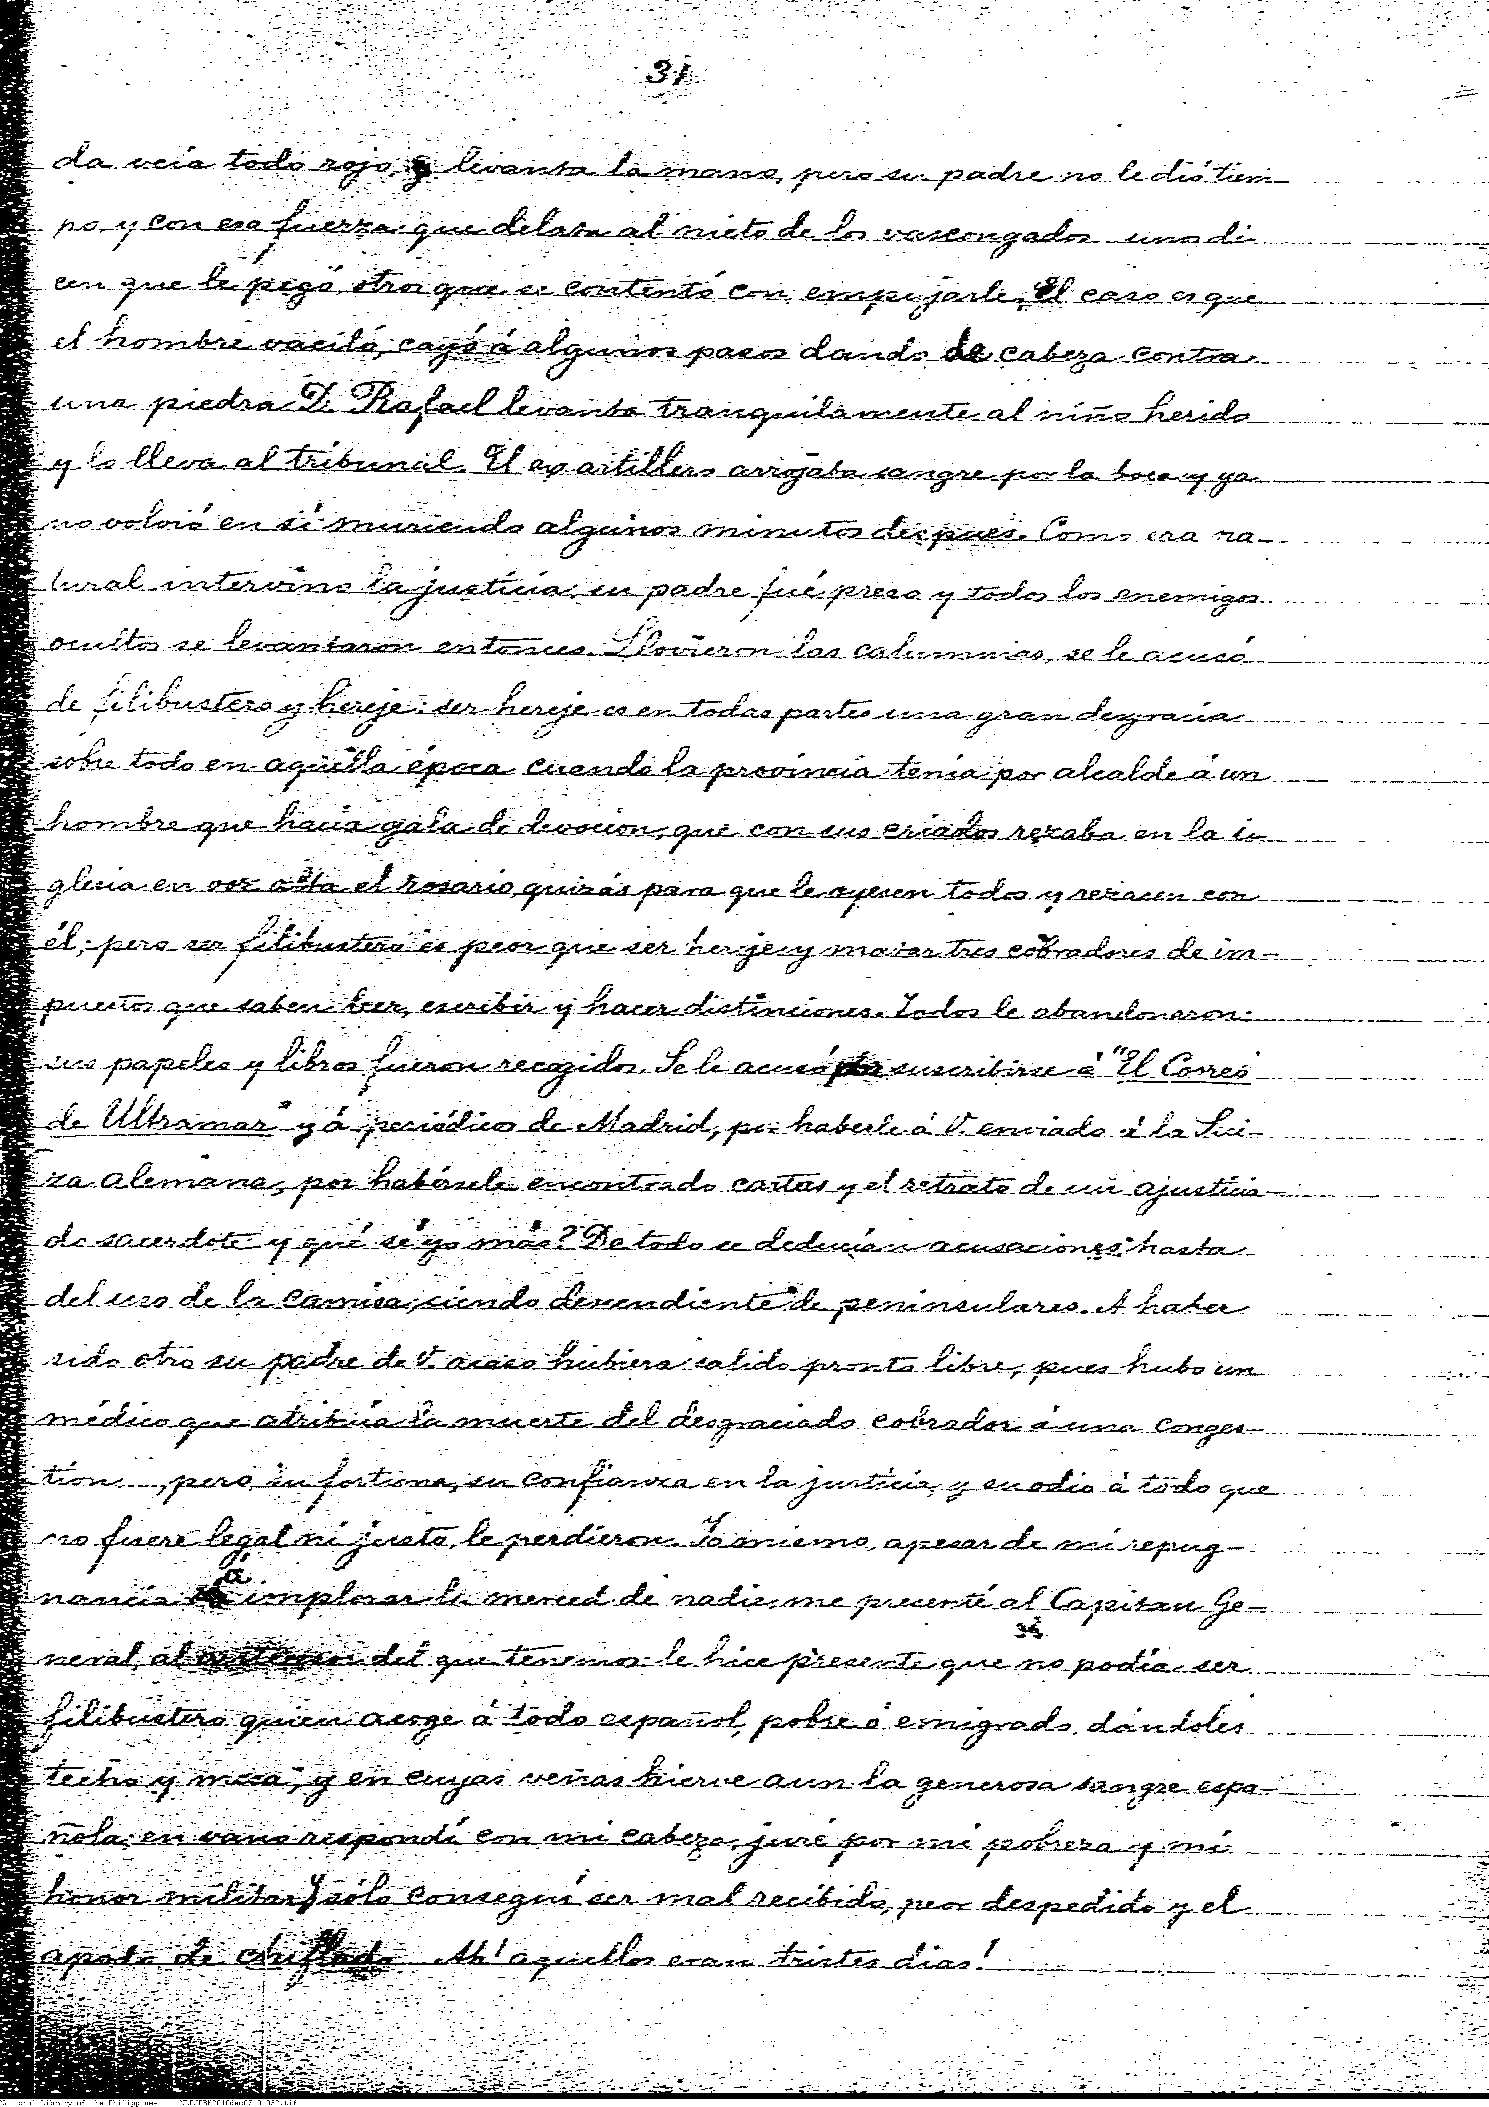 31
da veía todo rojo, y levanta la mano, pero su padre no le dió tiem-
po, y con esa fuerza que delata al nieto de los vascongados unos di
cen que le pegó, otros que se contentó con empujarle. El caso es que
el hombre vaciló, cayó á algunos pasos dando de cabeza contra
una piedra. D. Rafael levanta tranquilamente al niño herido
y lo lleva al tribunal. El ex artillero arrojaba sangre por la boca y ya
no volvió en sí muriendo algunos minutos despues. Como era na-
tural intervino la justicia, su padre fué preso y todos los enemigos
ocultos se levantaron entonces. Llovieron las calumnias, se le acusó
de filibustero y hereje: ser hereje es en todas partes una gran desgracia
sobre todo en aquella época cuando la provincia tenía por alcalde á un
hombre que hacía gala de devocion, que con sus criados rezaba en la i-
glesia en voz alta el rosario, quizás para que le oyesen todos y rezasen con
él; pero ser filibustero es peor que ser hereje y matar tres cobradores de im-
puestos que saben leer, escribir y hacer distinciones. Todos le abandonaron:
sus papeles y libros fueron recogidos. Se le acusó por suscribirse á "El Correo
de Ultramar" y á periódicos de Madrid, por haberle á V. enviado á la Sui-
za alemana, por habérsele encontrado cartas y el retrato de un ajusticia-
do sacerdote y qué sé yo más? De todo se deducían acusaciones hasta
del uso de la camisa, siendo descendiente de peninsulares. A haber
sido otro su padre de V. acaso hubiera salido pronto libre, pues hubo un
médico que atribuía la muerte del desgraciado cobrador á una conges-
tion, pero su fortuna, su confianza en la justicia, y su odio á todo que
no fuere legal ni justo, le perdieron. Yo mismo, apesar de mi repug-
nancia á implorar la merced de nadie, me presenté al Capitan Ge-
36
neral, al antecesor del que tenemos: le hice presente que no podía ser
filibustero quien acoge á todo español, pobre ó emigrado, dándoles
techo y mesa, y en cuyas venas hierve aun la generosa sangre espa-
ñola, en vano respondí con mi cabeza, juré por mi pobreza y mi
honor militar y sólo conseguí ser mal recibido, peor despedido y el
apodo de chiflado. Ah! aquellos eran tristes dias!